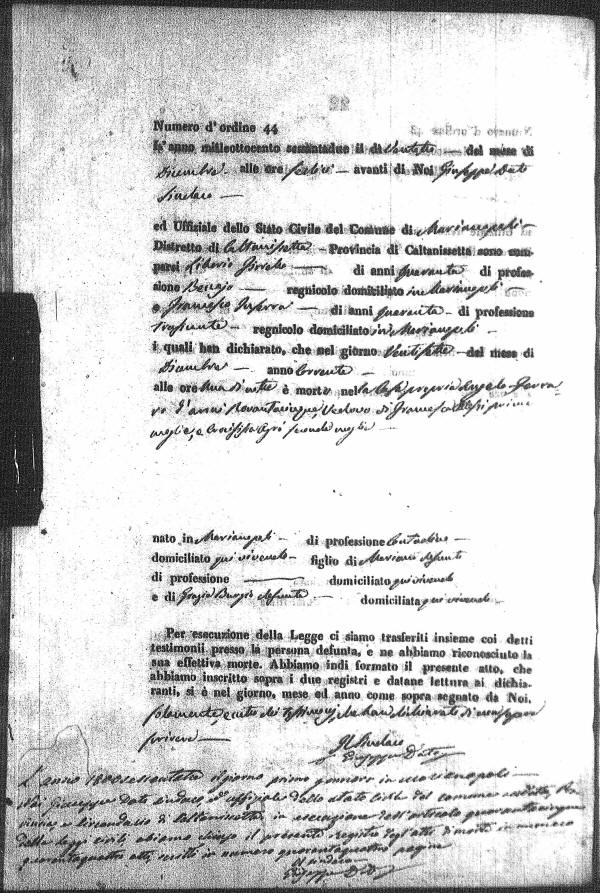 Numero d'ordine 44
L'anno milleottocento sessantadue il di ventotto del mese di
Dicembre alle ore sedici avanti di Noi Giuseppe Dato
Sindaco
ed Uffiziale dello Stato Civile del Comune di Marianopoli
Distretto di Caltanissetta Provincia di Caltanissetta sono com-
parsi Liborio di anni quaranta di profes-
sione regnicolo domiciliato in Marianopoli
e Francesco di anni quaranta di professione
regnicolo domiciliato in Marianopoli
i quali han dichiarato, che nel giorno ventisette del mese di
Dicembre anno corrente
alle ore una di notte è morto nella casa propria Angelo Ferra-
ro d'anni vedovo di Francesca prima
moglie, e seconda moglie
nato in Marianopoli di professione Contadino
domiciliato qui vivendo figlio di Mariano defunto
di professione domiciliato qui vivendo
e di Grazia defunta domiciliata qui vivendo
Per esecuzione della Legge ci siamo trasferiti insieme coi detti
testimonii presso la persona defunta, e ne abbiamo riconosciuto la
sua effettiva morte. Abbiamo indi formato il presente atto, che
abbiamo inscritto sopra i due registri e datane lettura ai dichia-
ranti, si è nel giorno, mese ed anno come sopra segnato da Noi,
solamente, che han dichiarato di non saper
scrivere
Il Sindaco
Giuseppe Dato
L'anno il giorno primo gennaro in Marianopoli
Noi Giuseppe Dato sindaco ed uffiziale dello stato civile del comune
e circondario di Caltanissetta, in esecuzione dell'articolo quarantacinque
delle leggi civili abiamo chiuso il presente registro degli atti di morte in numero
quarantaquattro atti, scritti in numero quarantaquattro pagine
Il sindaco
Giuseppe Dato